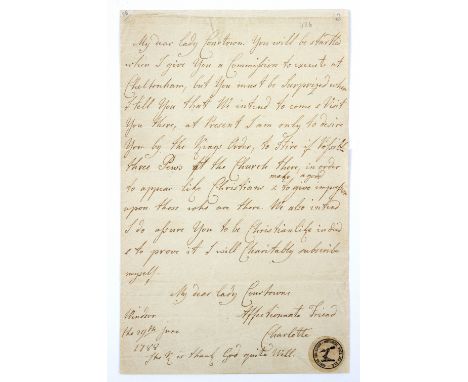 My dear Lady Courtown. You will be startled
when I give You a Commission to execute at
Cheltenham, but You must be Surprized when
I tell You that We intend to come & Visit
You there, at Present I am only to desire
You by the Kings Order, to Hire if Possible
three Pews at the Church there, in order
make, a good
to appear like Christians & to give impression
upon those who are there. We also intend
I do assure You to be Christianlike indeed
& to prove it I will Charitably subscribe
myself,
My dear Lady Courtowns
Windsor Affectionate Friend
the 29th June Charlotte
1788
The K is thank God quite Well.